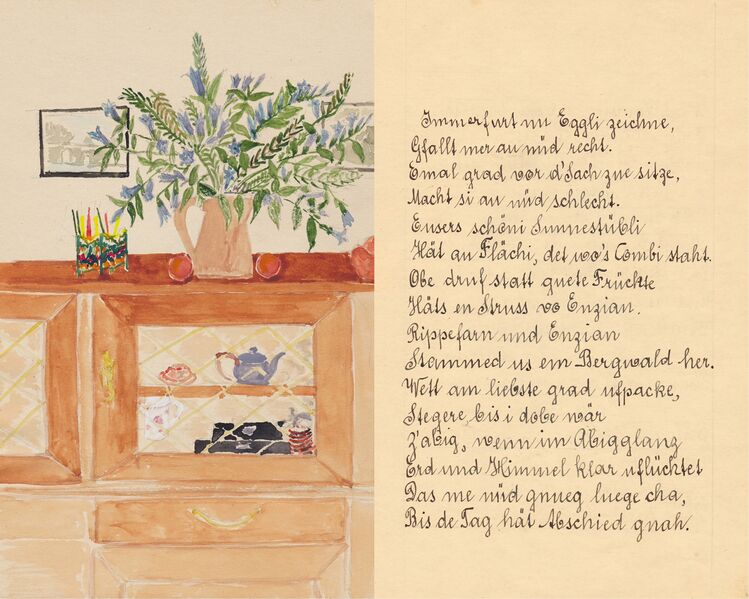 Immerfurt nu Eggli zeichne,
Gfallt mer au nüd recht.
Emal grad vor d'Sach zue sitze,
Macht si au nüd schlecht.
Eusers schöni Sunnestübli
Hät au Flächi, det wo's Combi staht.
Obe druf statt guete Früchte
Häts en Struss vo Enzian.
Rippefarn und Enzian
Stammed us em Bergwald her.
Wett am liebste grad ufpacke,
Stegere bis i dobe wär
Z'abig, wenn im Abigglanz
Erd und Himmel klar uflüchtet
Das me nüd gnueg luege cha,
Bis de Tag hät Abschied gnah.